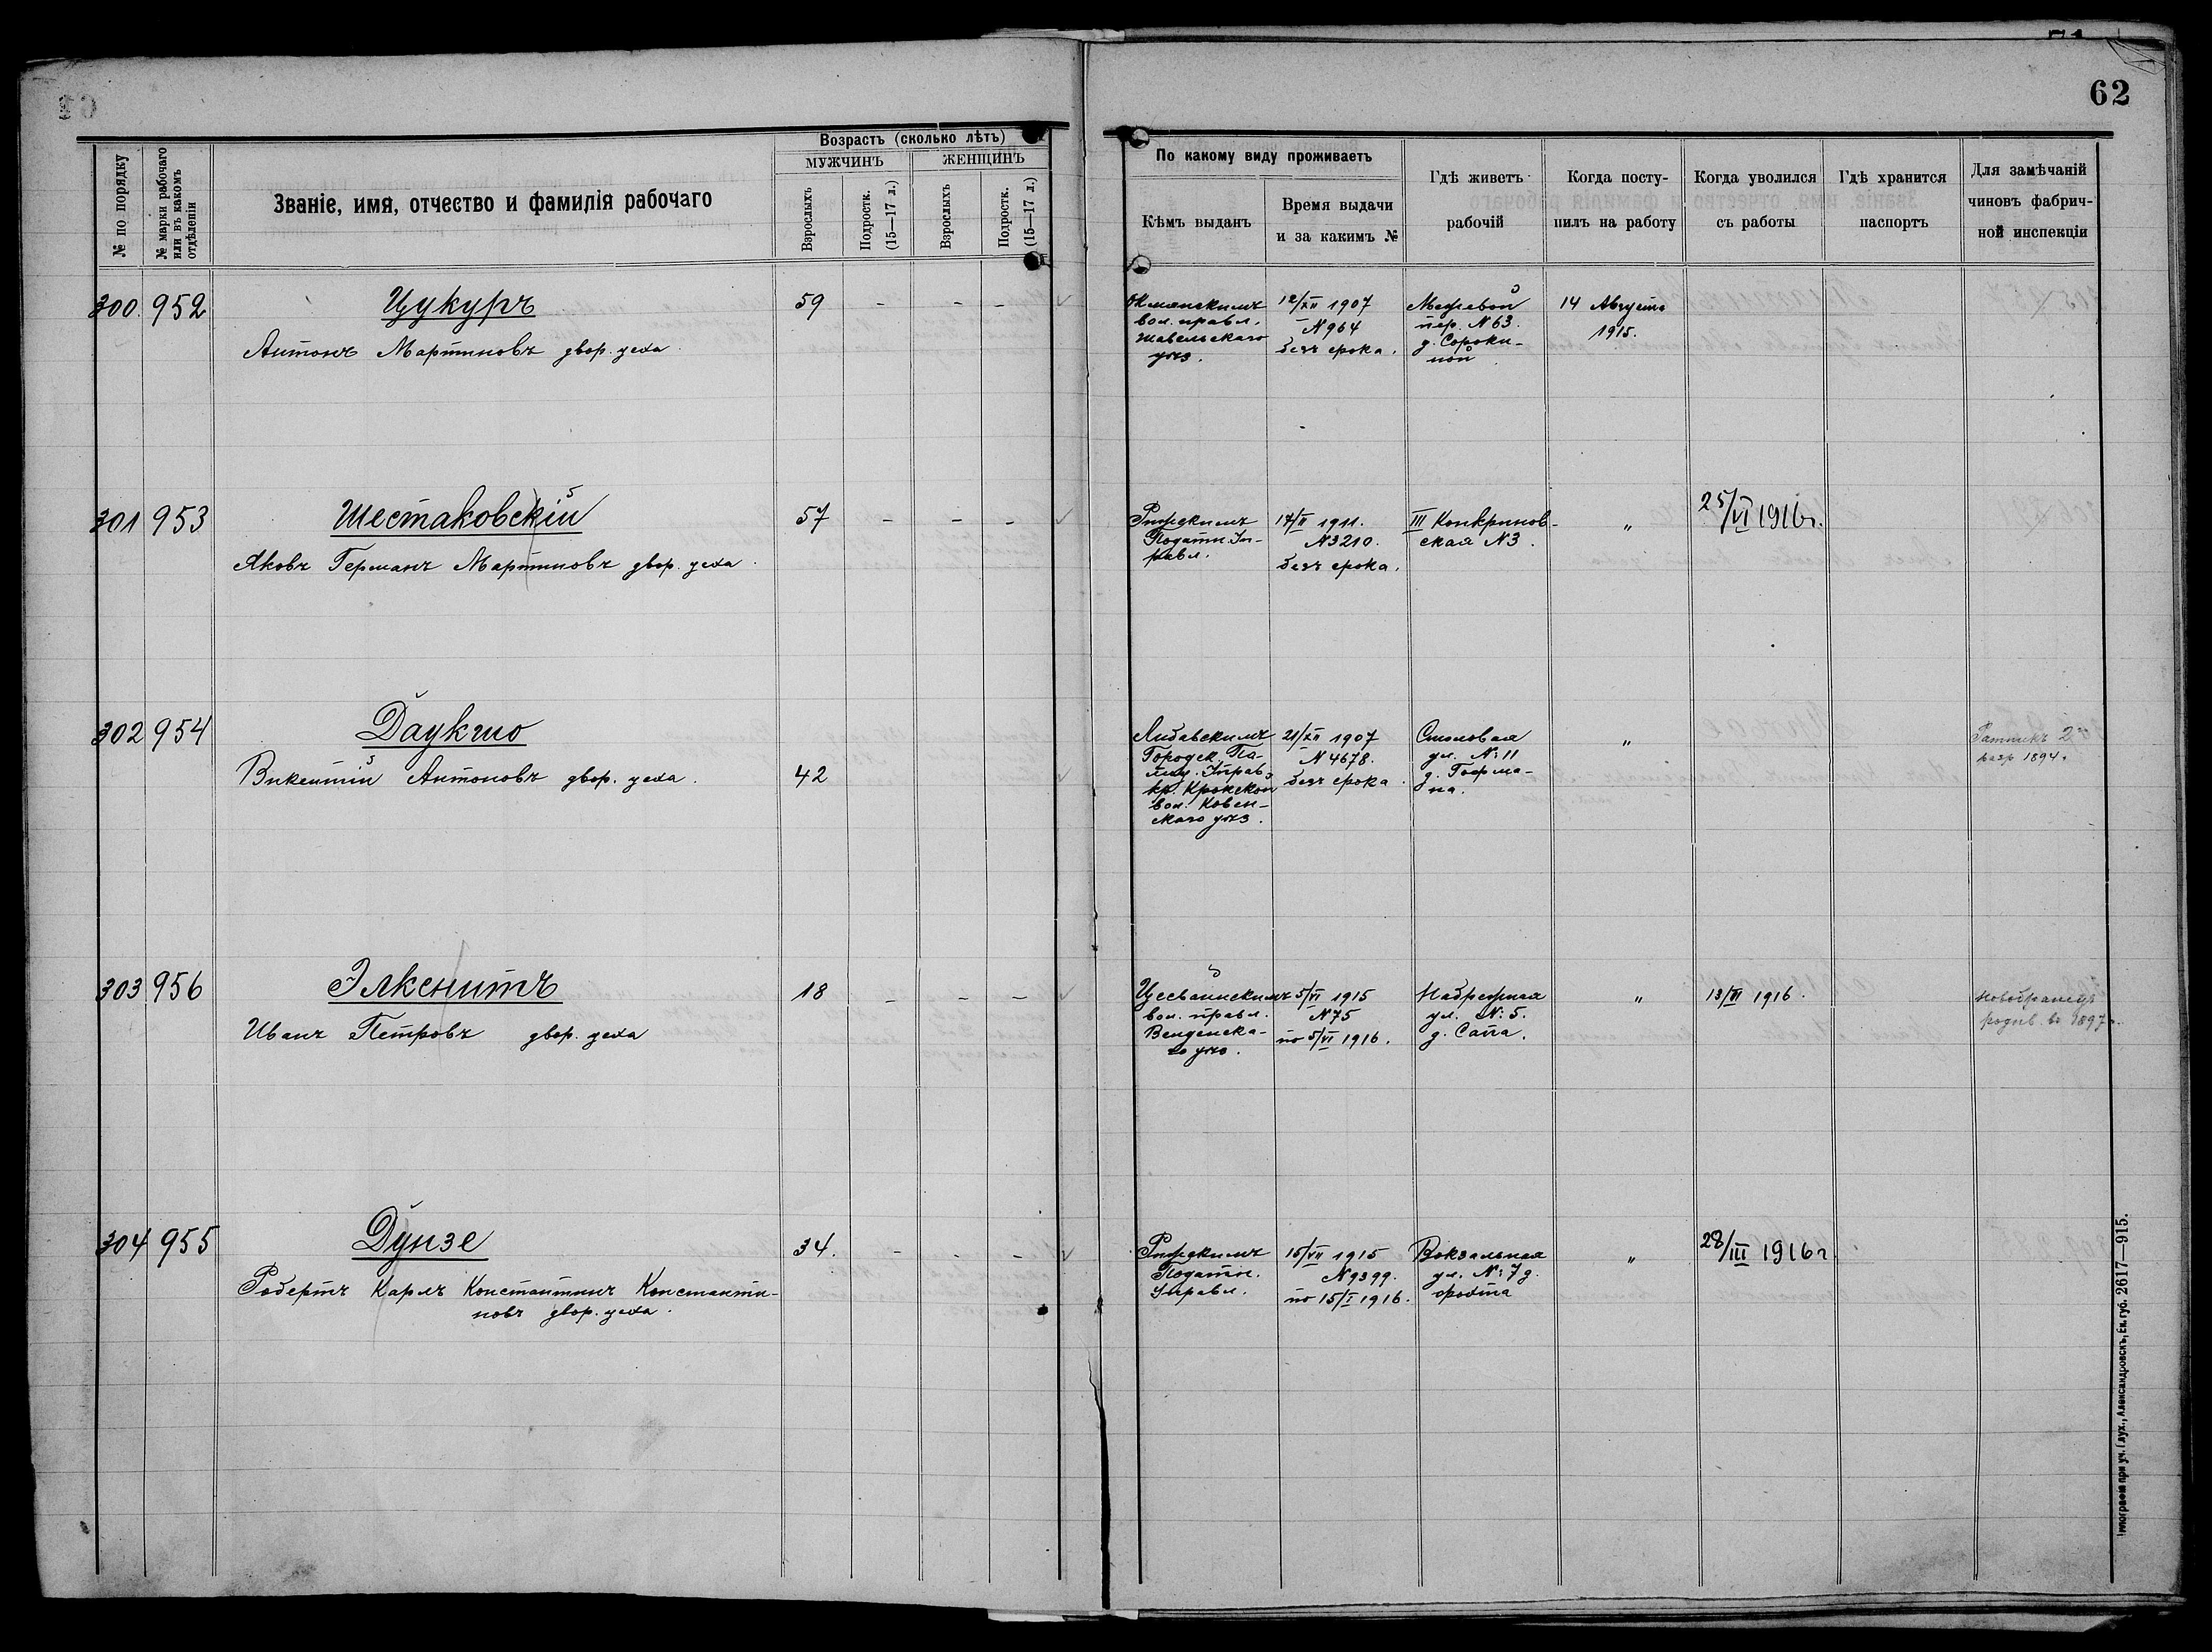 62
Возрастъ (сколько лѣтъ)
МУЖЧИНЪ
ЖЕНЩИНЪ
№ по порядку
№ марки рабочаго или въ какомъ отдѣленіи
Званіе, имя, отчество и фамилія рабочаго
Взрослыхъ
Подростк. (15—17 л.)
Взрослыхъ
Подростк. (15—17 л.)
По какому виду проживаетъ
Кѣмъ выданъ
Время выдачи
и за какимъ №
Гдѣ живетъ
рабочій
Когда посту-
пилъ на работу
Когда уволился
съ работы
Гдѣ хранится
паспортъ
Для замѣчаній
чиновъ фабрич-
ной инспекціи
300 952 Цукуръ 59 - - -
Антонъ Мартиновъ двор. цеха
Окмянскимъ
вол. правл.
Шавельскаго
уѣз.
12/XII 1907
N 964
безъ срока.
Межевой
пер. N 63.
д. Сороки-
ной
14 Августа
1915.
301 953 Шестаковскій 57 - - -
Яковъ Германъ Мартиновъ двор. цеха
Рижскимъ
Податн. Уп-
равл.
17/II 1911.
N 3210.
безъ срока.
III Конкринов-
ская N 3.
"
25/VI 1916 г.
302 954 Даукшо
Викентій Антоновъ двор. цеха. 42
Либавскимъ
Городск. По-
лиц. Управ.
кр. Крокской
вол. Ковен-
скаго уѣз.
21/XII 1907
N 4678.
безъ срока.
Столовая
ул. N: 11
д. Гофма-
на.
"
Ратникъ 2
разр 1894.
303 956 Элкснитъ 18 - - -
Иванъ Петровъ двор. цеха
Цесваинскимъ
вол. правл.
Венденска-
го уѣз.
5/VI 1915
N 75
по 5/VI 1916.
Набрежная
ул. N: 5.
д. Сапа.
"
13/VI 1916.
Новобранецъ
родив. въ 1897 г.
304 955 Дунзе 34. - - -
Робертъ Карлъ Константинъ Константи-
новъ двор. цеха.
Рижскимъ
Податн.
Управл.
15/VII 1915
N 9399.
по 15/I 1916.
Вокзальная
ул. N: 7 д.
"
28/III 1916 г.
Александровскъ, Ек. губ. 2617—915.